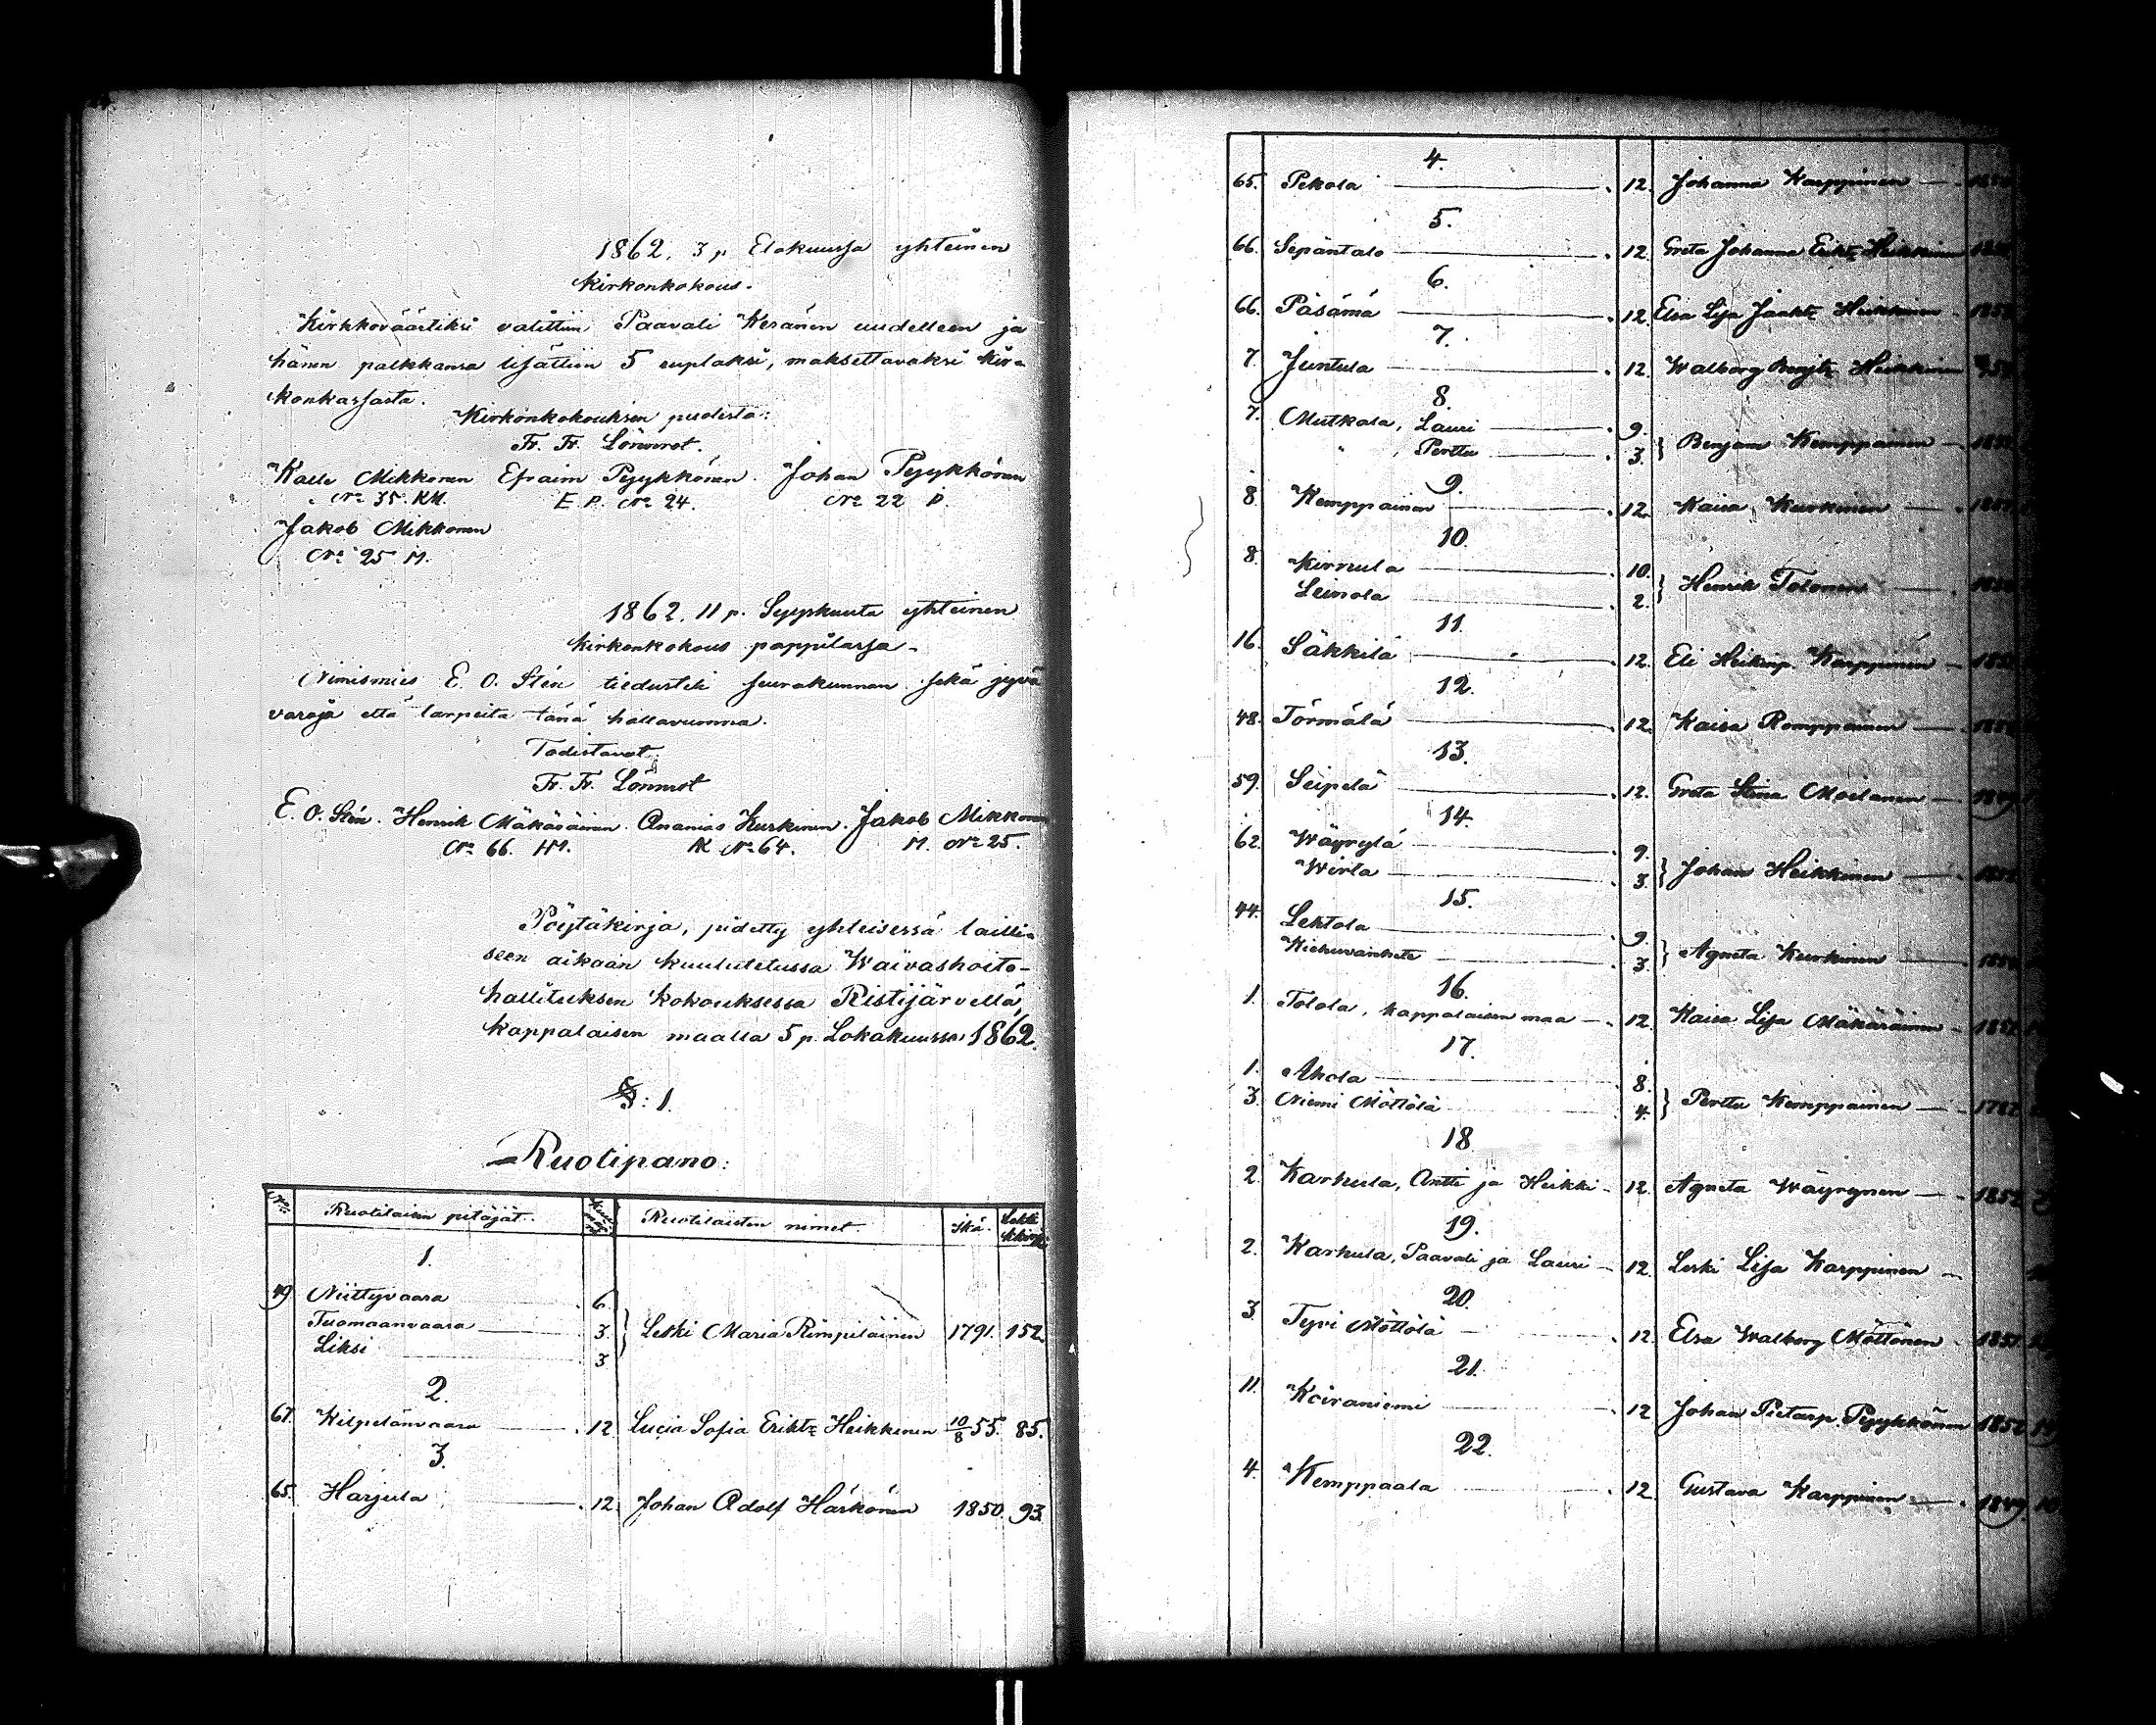 1862. 3 p. Elokuussa yhteinen
kirkonkokous.
Kirkkoväärtiksi valittiin Paavali Keränen uudelleen ja
hänen palkkansa lisättiin 5 ruplaksi, maksettavaksi kir-
konkassasta.
Kirkonkokouksen puolesta:
Fr. Fr. Lönnrot.
Kalle Mikkonen Efraim Pyykkönen. Johan Pyykkönen
No 35. KM. E. P. No 24. No 22 P.
Jakob Mikkonen
No 25 M.
1862. 11 p. Syyskuuta yhteinen
kirkonkokous pappilassa.
Nimismies E. O. Stén tiedusteli seurakunnan sekä jyvä
varoja että tarpeita tänä hallavuonna.
Todistavat:
Fr. Fr. Lönnrot
E. O. Stén. Henrik Mäkäräinen. Ananias Kurkinen. Jakob Mikkonen
No 66. HM. AK No 64. M. No 25.
Pöytäkirja, pidetty yhteisessä lailli-
seen aikaan kuulutetussa Waivashoito-
hallituksen kokouksessa Ristijärvellä,
kappalaisen maalla 5 p. Lokakuussa 1862.
§: 1.
Ruotipano:
No Ruotilaisen pitäjät. Ruotilaisten nimet. Ikä.
1.
49 Niittyvaara 6.
Tuomaanvaara 3. } Leski Maria Rimpiläinen 1791. 152.
Liksi 3
2.
67. Kilpelänvaara 12 Lucia Sofia Eriktr Heikkinen 10/8 55. 85.
3.
65. Harjula 12. Johan Adolf Härkönen 1850. 93.
4.
65. Pekola 12. Johanna Karppinen
5.
66. Sepäntalo 12. Greta Johanna Eriktr Heikkinen
6.
66. Päsämä 12. Elsa Lisa Jaaktr Heikkinen
7.
7. Juntula 12. Walborg Benjtr Heikkinen
8.
7. Mutkala, Lauri 9.
" , Perttu 3. } Benjam Kemppainen
9.
8 Kemppainen 12. Kaisa Kurkinen
10.
8. Kirnula 10.
Leinola 2. } Henrik Tolonen
11.
16. Säkkilä 12. Eli Heikinp. Karppinen
12.
48. Törmälä 12. Kaisa Romppainen
13.
59. Seipelä 12. Greta Stina Moilanen
14.
62. Wäyrylä 9.
Wirta 3. } Johan Heikkinen
15.
44. Lehtola 9.
3. } Agneta Kurkinen
16.
1. Tolola, kappalaisen maa 12. Kaisa Lisa Mäkäräinen
17.
1. Ahola 8.
3. Niemi Möttölä 4. } Perttu Kemppainen
18.
2. Karhula, Antti ja Heikki 12. Agneta Wäyrynen 1852
19.
2. Karhula, Paavali ja Lauri 12. Leski Lisa Karppinen
20.
3 Tyvi Möttölä 12. Elsa Walborg Möttönen
21.
11. Koiraniemi 12 Johan Pietarp. Pyykkönen
22.
4. Kemppaala 12. Gustava Karppinen 1849.